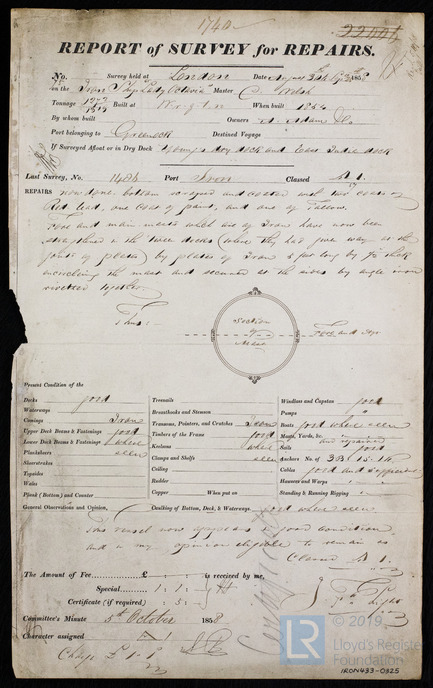 1740
REPORT of SURVEY for REPAIRS.
No. Survey held at London Date August 3d 1858
on the Iron Ship Lady Octavia Master Welsh
Tonnage Built at When built 1854
By whom built Owners A. Adam & Co
Port belonging to Greenock Destined Voyage
If Surveyed Afloat or in Dry Dock Young's dry dock and East India dock
Last Survey, No. 1486 Port Iron Classed A 1.
REPAIRS now done, bottom scraped and coated with two coats of
Red lead, one coat of paint, and one of Tallow.
Fore and main masts which are of Iron have now been
strengthened in the twice decks (where they had given way at the
joints of plates) by plates of Iron 5 feet long by thick
encircling the mast and secured at the sides by angle iron
rivetted together.
Thus:
Section
of
Mast
Fore and
Present Condition of the
Decks good Treenails Windlass and Capstan good
Waterways Breasthooks and Stemson Pumps "
Comings Iron Transoms, Pointers, and Crutches Iron Boats good where seen
Upper Deck Beams & Fastenings good Timbers of the Frame good Masts, Yards, &c. and repaired
Lower Deck Beams & Fastenings where Keelsons where Sails good
Planksheers seen Clamps and Shelfs seen Anchors No. of 3B1 1S. 1K.
Sheerstrakes Ceiling Cables good and sufficient
Topsides Rudder Hawsers and Warps "
Wales Copper When put on Standing & Running Rigging "
Plank (Bottom) and Counter
General Observations and Opinion, Caulking of Bottom, Deck, & Waterways good where seen
This vessel now appears in good condition
and in my opinion eligible to remain as
Classed A 1.
The Amount of Fee £ : : is received by me,
Special 1 : 1 :
Certificate (if required) : 5 :
Committee's Minute 5th October 1858
Character assigned A 1
© 2019
LR
Lloyd's Register
Foundation
IRON433-0325